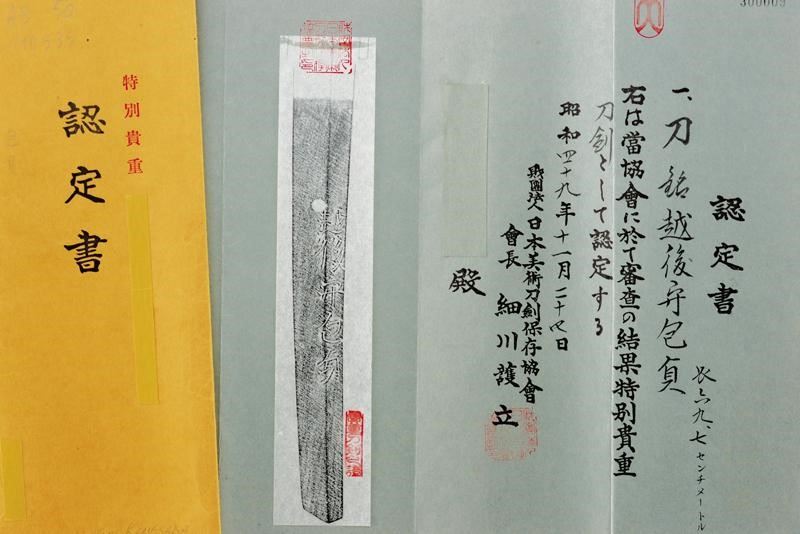 特別貴重
認定書
越後守包貞
300009
認定書
一、刀 銘 越後守包貞
長六九、七センチメートル
右は當協會に於て審査の結果特別貴重
刀剣として認定する
昭和四十九年十一月二十七日
財團法人 日本美術刀剣保存協會
會長 細川護立
殿